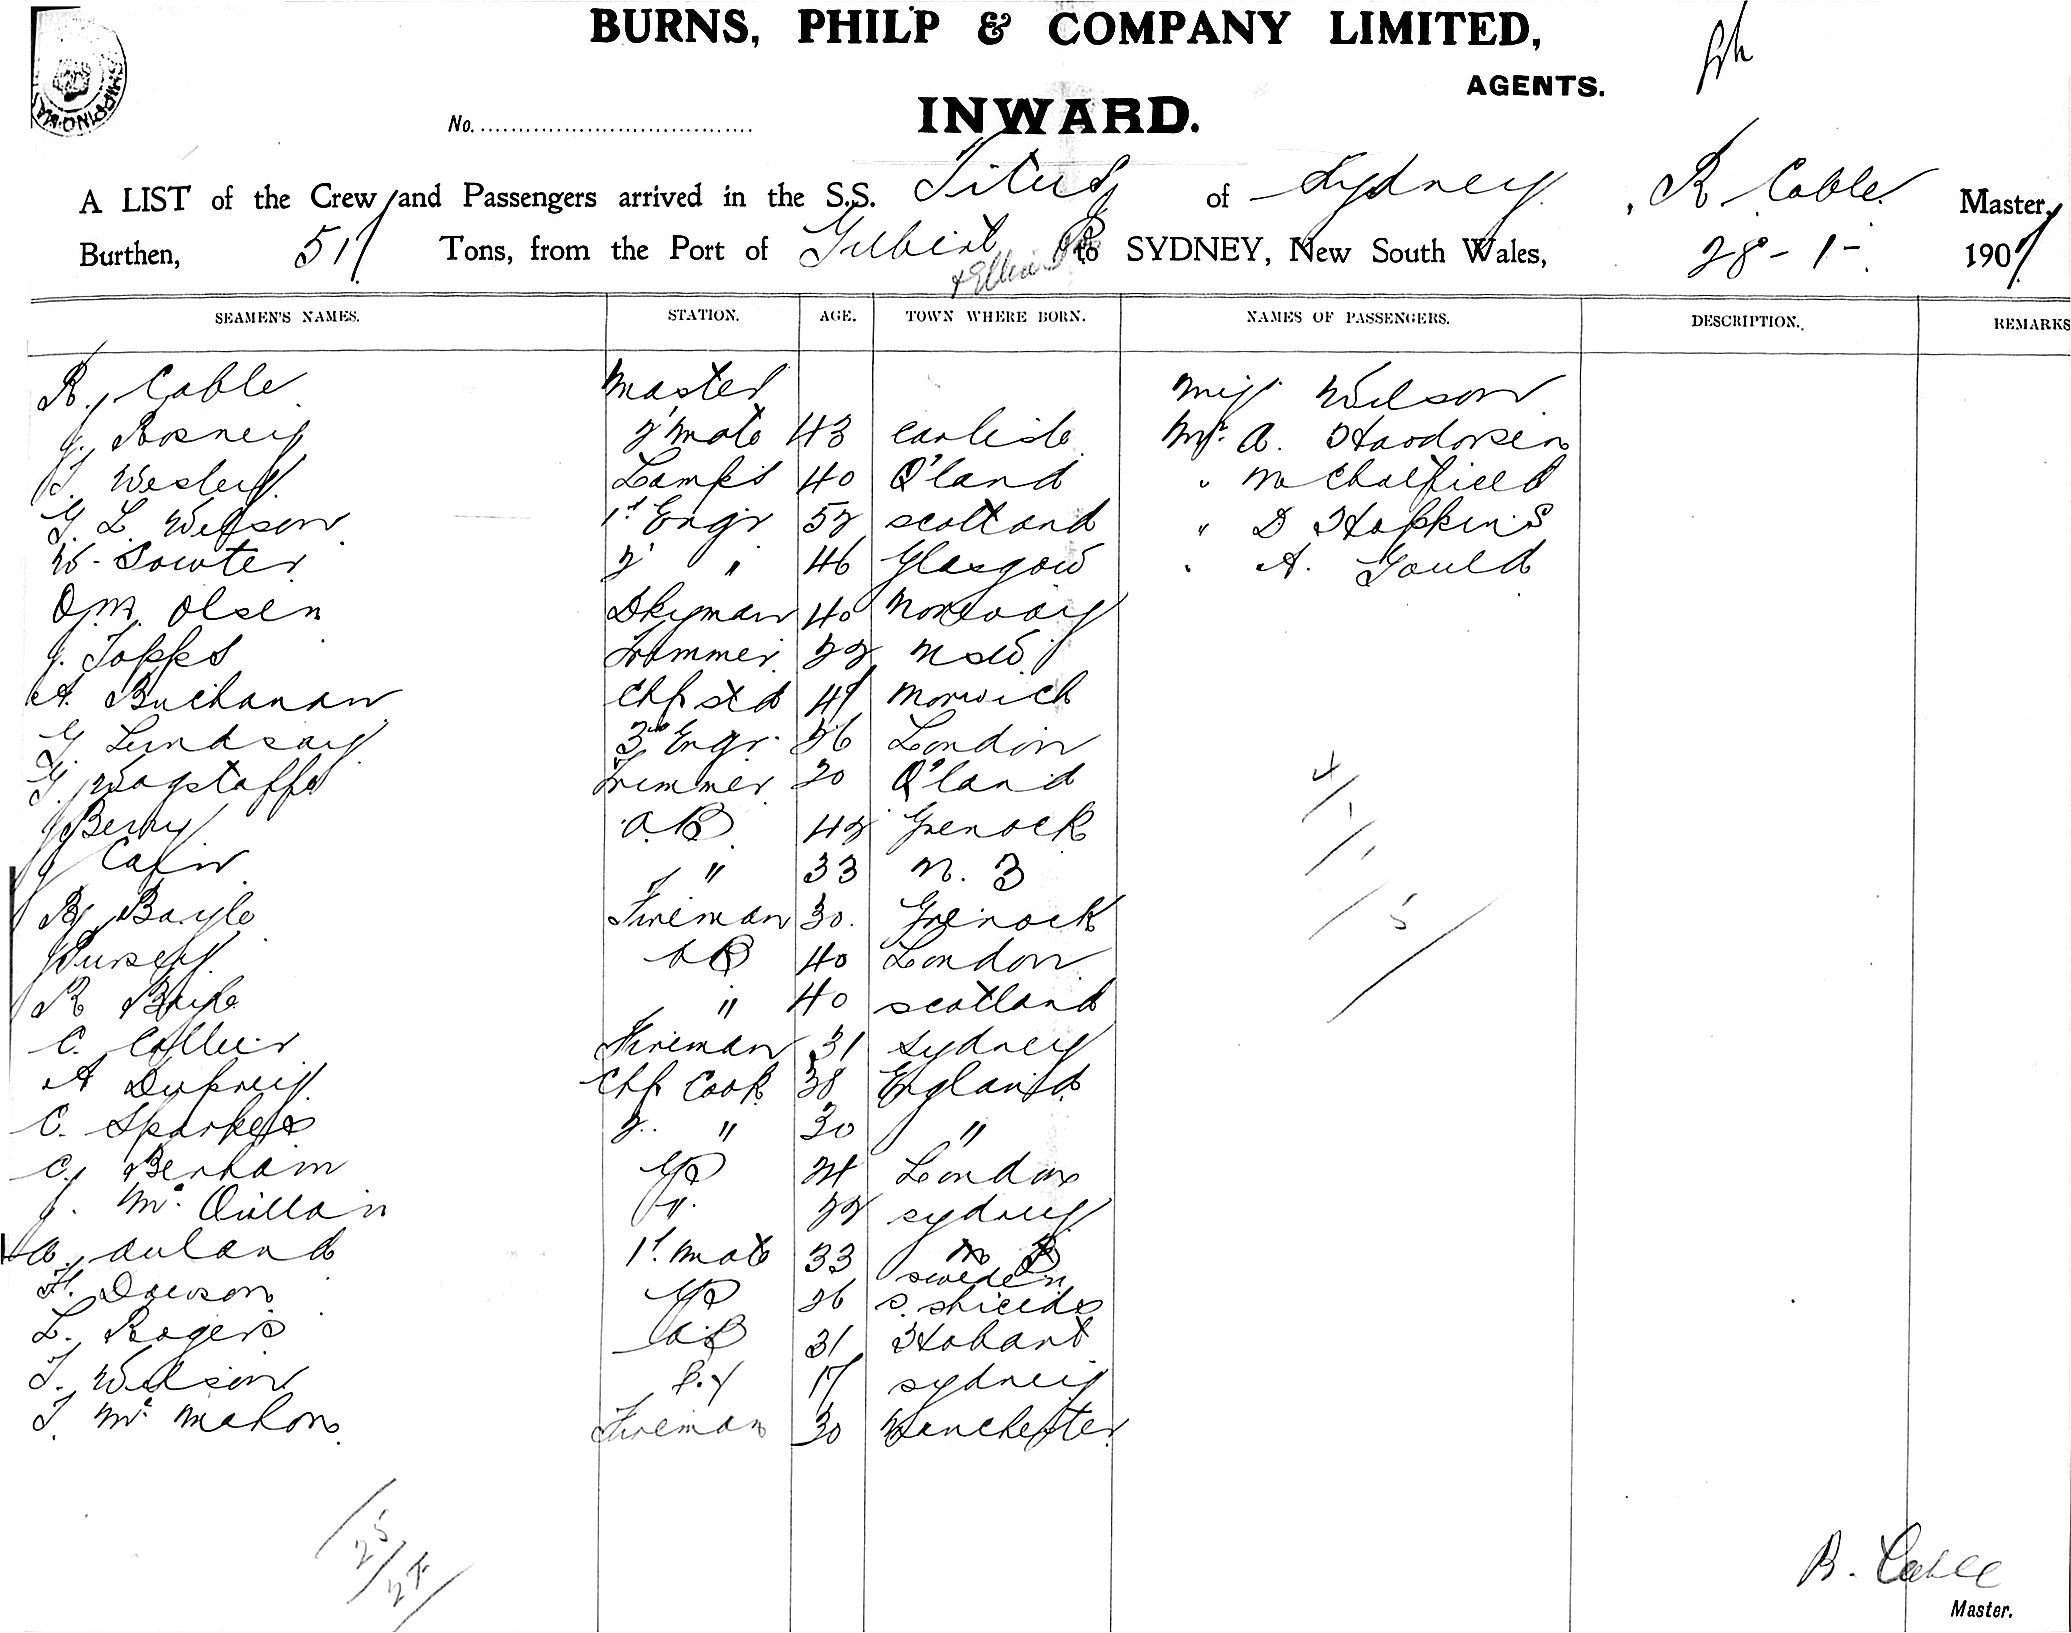 BURNS, PHILP & COMPANY LIMITED,
AGENTS.
No.
INWARD.
A LIST of the Crew and Passengers arrived in the S.S. Titus of Sydney, R Cable Master,
Burthen, Tons, from the Port of Gilbert & Ellice to SYDNEY, New South Wales, 28-1- 1907
SEAMEN'S NAMES. STATION. AGE. TOWN WHERE BORN. NAMES OF PASSENGERS. DESCRIPTION. REMARKS
R. Cable Master Miss Wilson
J. Rosney 2' mate 43 Carlisle Mr. A.
T. Wesley Lamps 40 Q'land " M Chatfield
G. L. Wilson 1st Engr 52 Scotland " D Hopkins
W. Sowter 2' " 46 Glasgow " A. Gould
O.M. Olsen Dkyman 40 Norway
J. Topps Trimmer 22 NSW
A. Buchanan Chf std Norwich
G. Lindsay 3rd Engr. 36 London
G. Wagstaffe Trimmer 20 Q'land
J Berry A.B 42 Grenock
J Cafin " 33 N. Z
R Bayle Fireman 30. Grenock
J Pursey AB 40 London
R Boyle " 40 Scotland
C. Collier Fireman 31 Sydney
A Chf Cook 38 England
C. Sparkes 2. " 30 "
C. Benham GS 24 London
J. Mc. Quillan ". 22 Sydney
A. Auland 1st. Mate 33 Sweden
H. Dawson GS 26 S. Shields
L. Rogers AB 31 Hobart
T. Wilson Boy 17 Sydney
T. Mc Mahon Fireman 30 Manchester
25
24
4
1
5
R. Cable
Master.